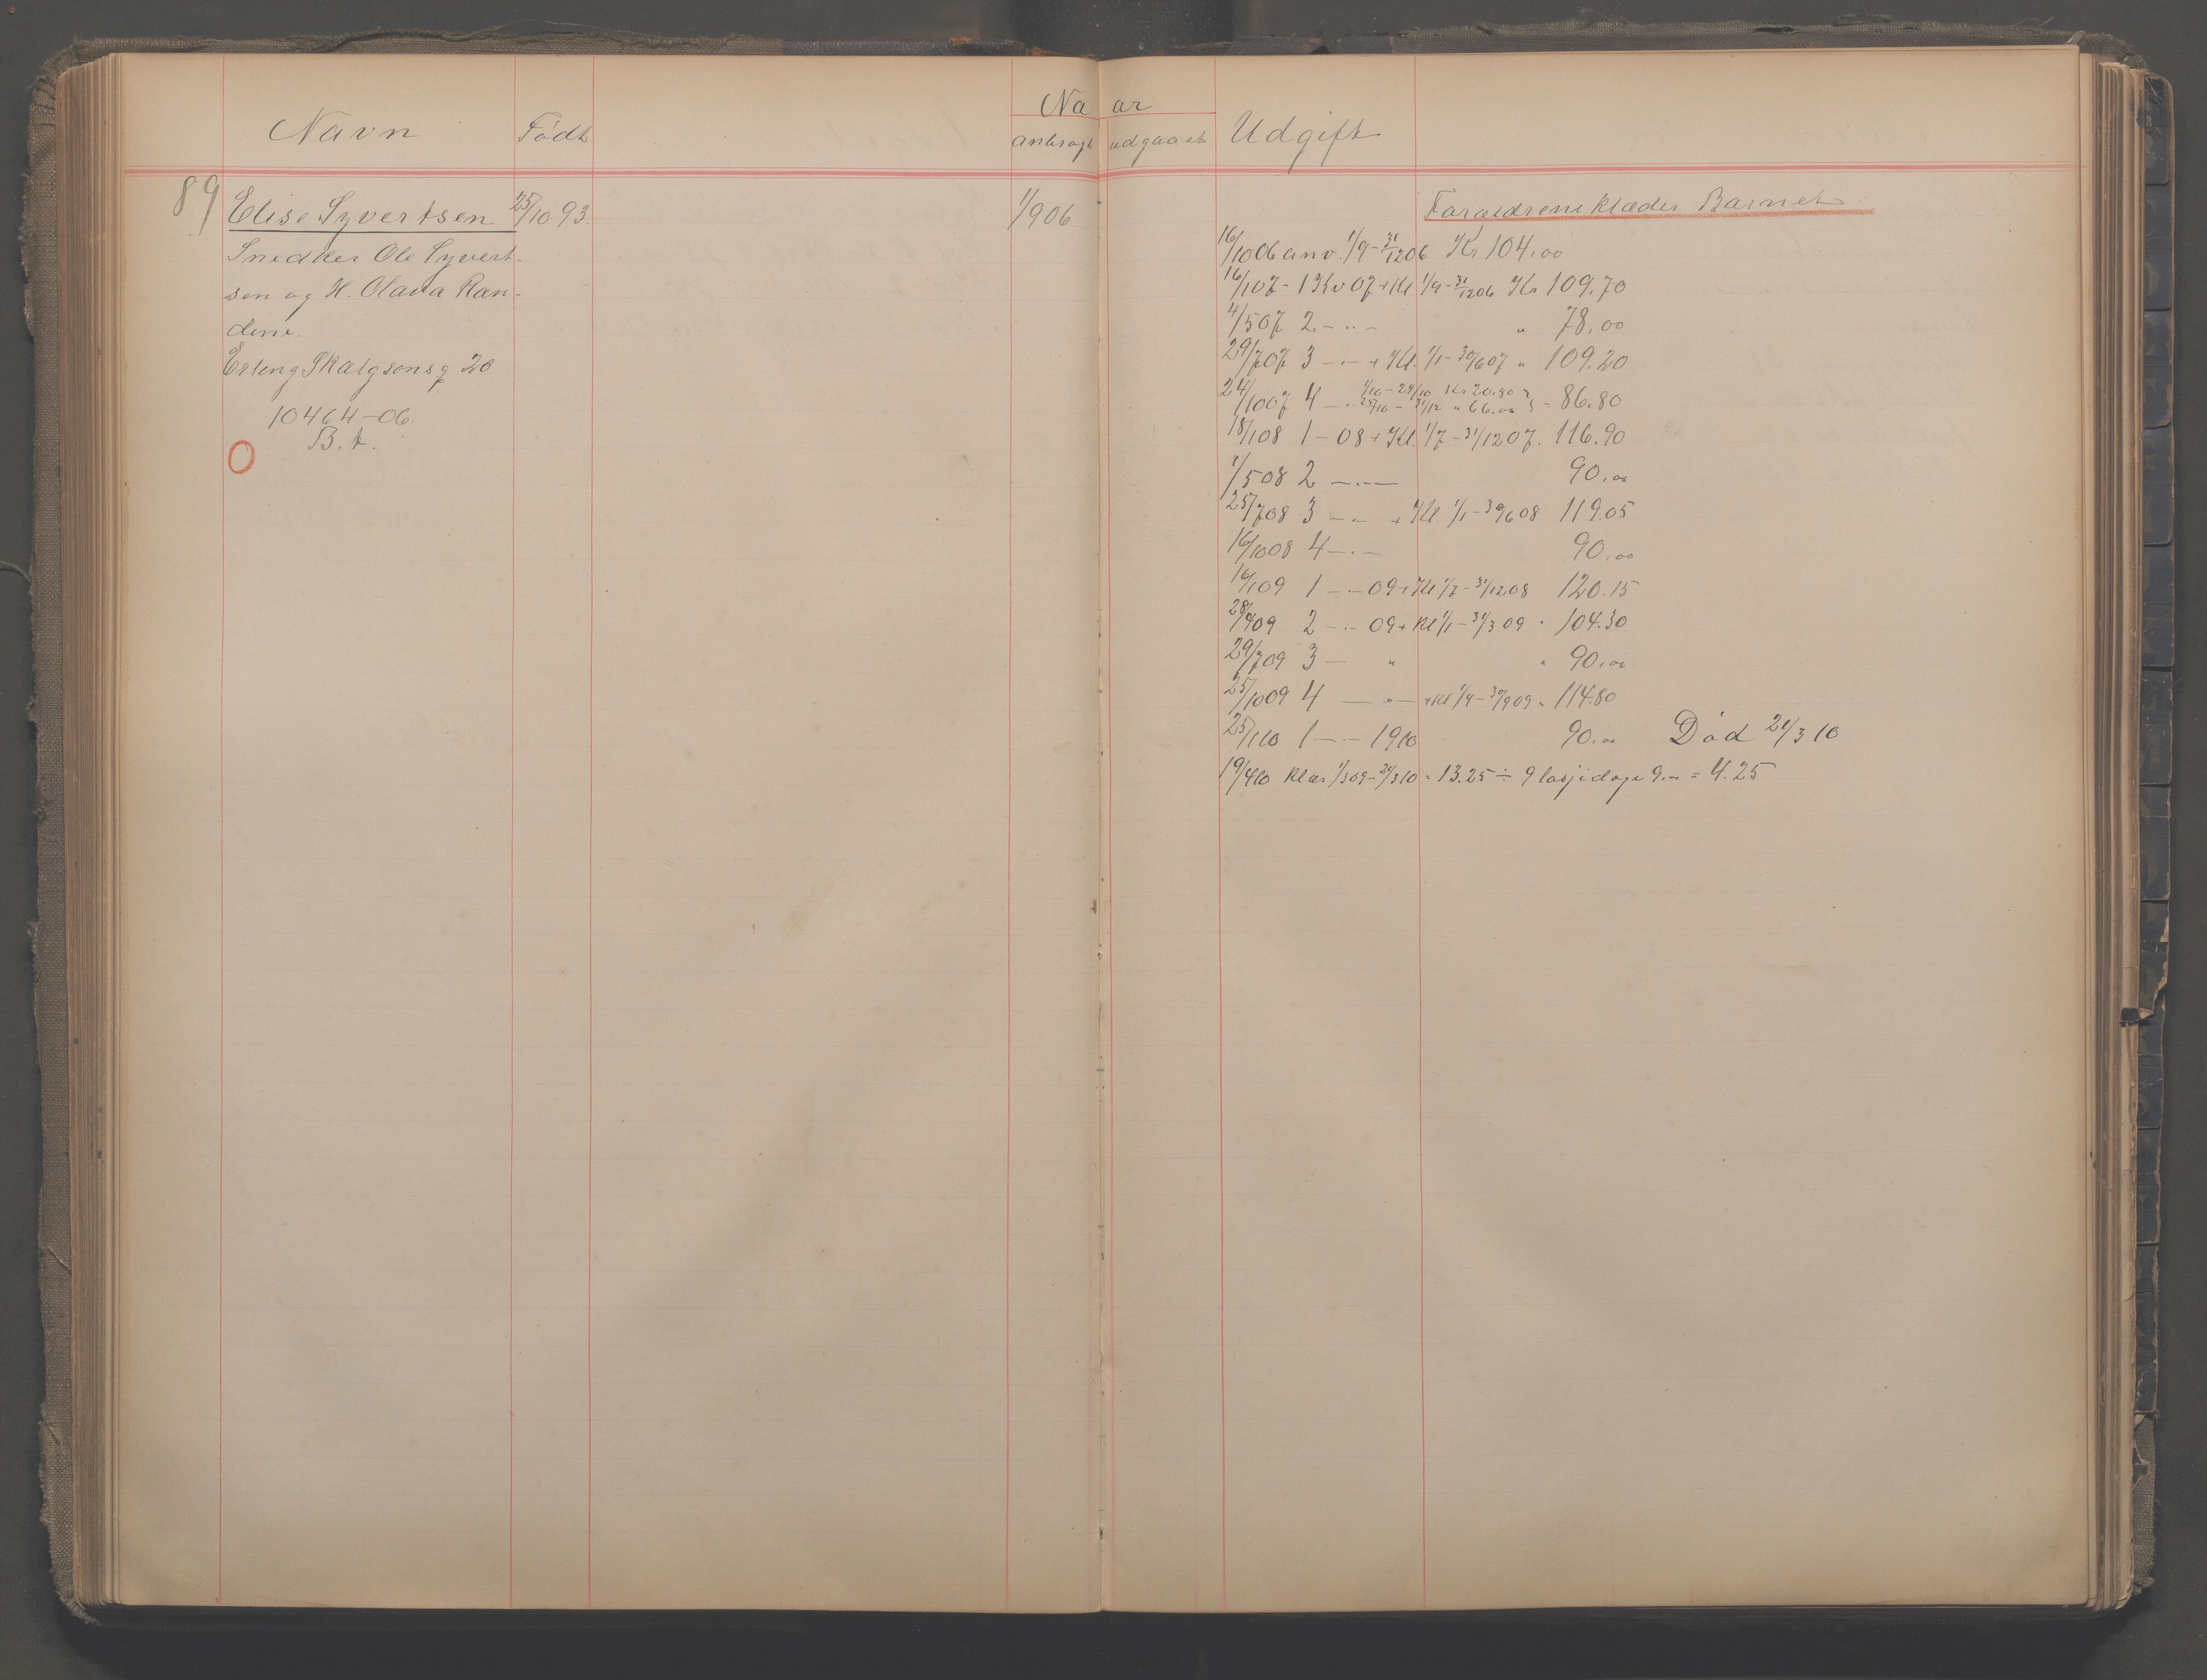 Navn
Født
Naar
anbragt
udgaaet
Udgift
89
Elise Syvertsen
25/10 93.
1/9 06
Snedker Ole Syvert-
sen og H. Olava Ran-
dine.
Erling Skalgsonsg 20
10464-06.
B. t.
O
Forældrene klæder Barnet
16/10 06 anv. 1/9 - 31/12 06 Kr 104.00
16/1 07 - 1 Kv 07 + Kl 1/9 - 31/12 06 Kr 109.70
4/5 07 2 - „ - „ 78.00
29/7 07 3 - „ - + Kl. 1/1 - 30/6 07 „ 109.20
24/10 07 4 - „ 1/10 - 24/10 Kr 20.80
25/10 - 31/12 „ 66.00 } - 86.80
18/1 08 1 - 08 + Kl. 1/7 - 31/12 07. 116.90
1/5 08 2 - „ - 90.00
25/7 08 3 - „ + Kl. 1/1 - 30/6 08 119.05
16/10 08 4 - „ - 90.00
16/1 09 1 - „ - 09 + Kl 1/7 - 31/12 08 120.15
28/4 09 2 - „ - 09 + Kl 1/1 - 31/3 09 „ 104.30
29/7 09 3 - „ „ 90.00
25/10 09 4 - „ - + Kl 1/4 - 30/9 09 „ 114.80
25/1 10 1 - „ - 1910 90.00 Død 21/3 10
19/4 10 Klær - 13.25 ÷ 9 9.00 = 4.25